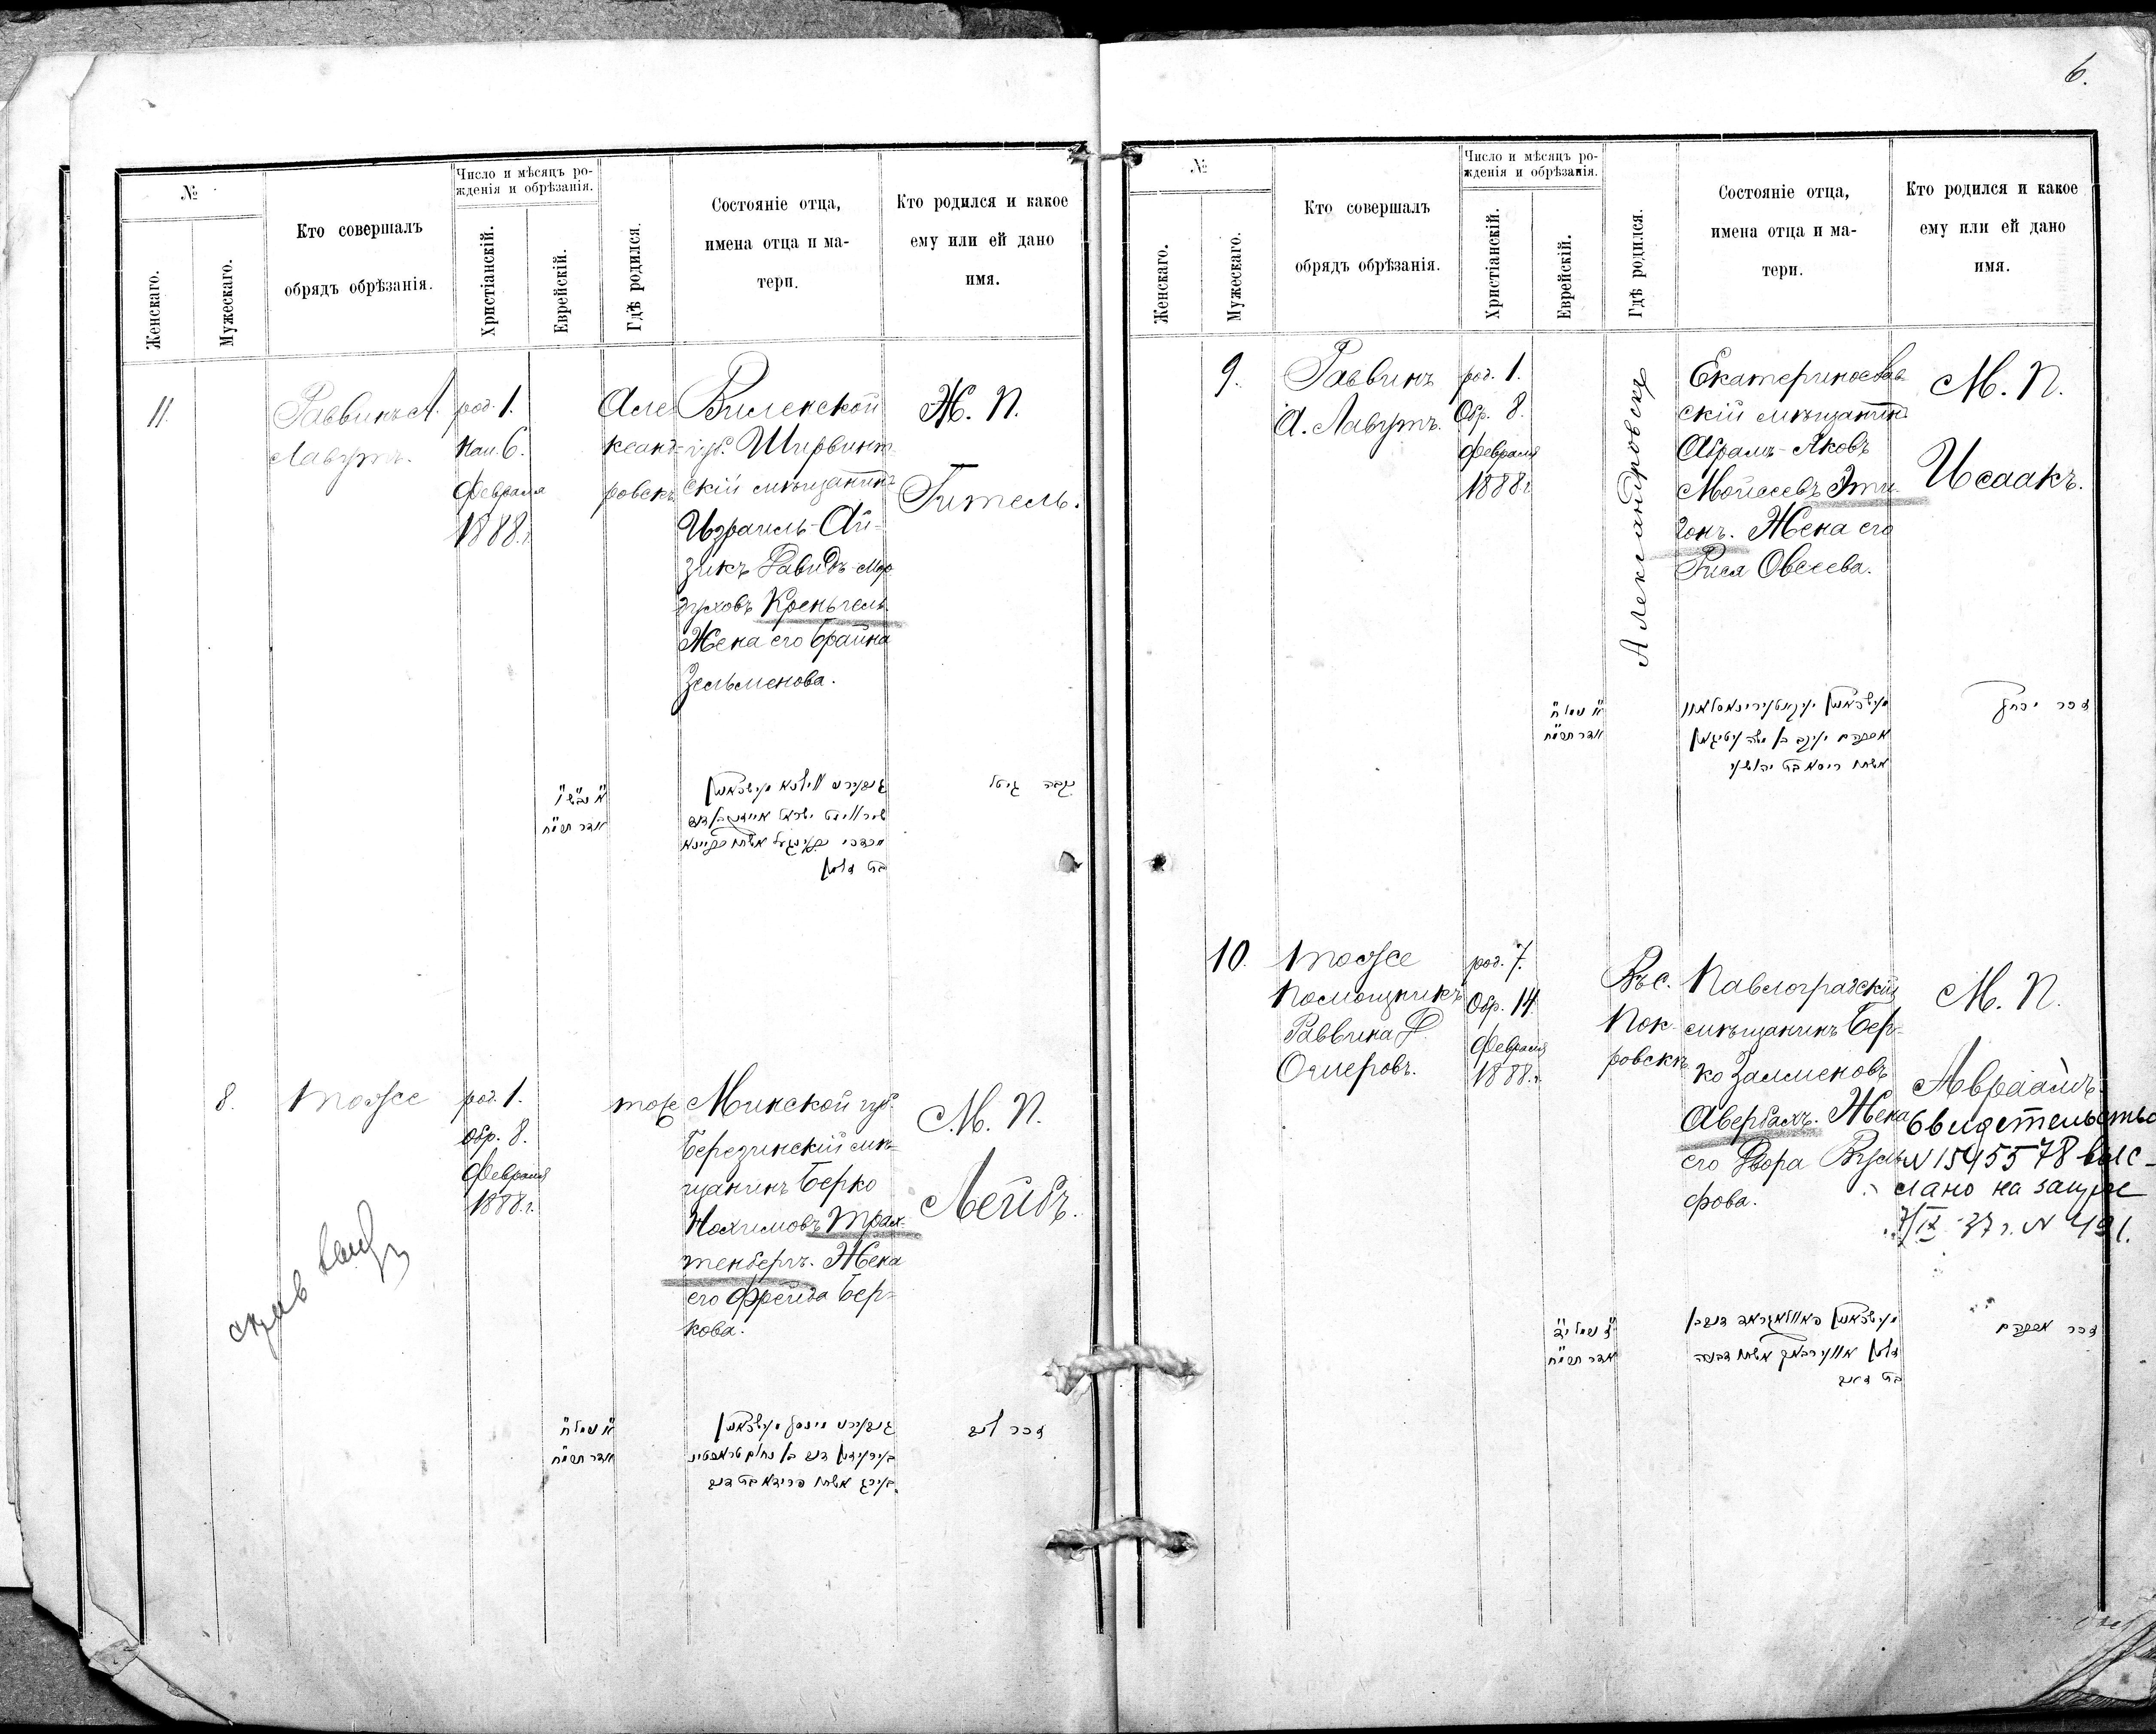 6.
№
Женскаго.
Мужескаго.
Кто совершалъ
обрядъ обрѣзанія.
Число и мѣсяцъ ро-
жденія и обрѣзанія.
Христіанскій.
Еврейскій.
Гдѣ родился.
Состояніе отца,
имена отца и ма-
тери.
Кто родился и какое
ему или ей дано
имя.
11.
Раввинъ А.
Лавутъ.
род. 1.
нап. 6.
Февраля
1888 г.
Але
ксанд-
ровскъ
Виленской
губ. Ширвинт
скій мѣщанинъ
Израиль-Ай-
зикъ Давидъ-Мор
духовъ Креньгель
Жена его Брайна
Зельменова.
Ж. П.
Гитель.
אדר תרמ״ח
נקבה גיטל
8.
тоже
род. 1.
Обр. 8.
Февраля
1888 г.
тоже
Минской губ.
Березинскій мѣ-
щанинъ Берко
Нохимовъ Трах-
тенбергъ. Жена
его Фрейда Бер-
кова.
М. П.
Лейбъ.
אדר תרמ״ח
זכר ליב
№
Женскаго.
Мужескаго.
Кто совершалъ
обрядъ обрѣзанія.
Число и мѣсяцъ ро-
жденія и обрѣзанія.
Христіанскій.
Еврейскій.
Гдѣ родился.
Состояніе отца,
имена отца и ма-
тери.
Кто родился и какое
ему или ей дано
имя.
9.
Раввинъ
А. Лавутъ.
род. 1.
Обр. 8.
Февраля
1888 г.
Александровскъ
Екатеринослав-
скій мѣщанинъ
Абрамъ-Яковъ
Мойсеевъ Эти-
гонъ. Жена его
Рися Овсеева.
М. П.
Исаакъ.
אדר תרמ״ח
זכר יצחק
10.
тоже
Помощникъ
Раввина
Омеровъ.
род. 7.
Обр. 14.
Февраля
1888 г.
Въ с.
Пок-
ровскѣ
Павлоградскій
мѣщанинъ Бер-
ко Залменовъ
Авербахъ. Жена
его Двора Вуль-
фова.
М. П.
Авраамъ.
Свидетельство
N 1545578 выс-
лано на запрос
7/IX-37 г. N 491.
אדר תרמ״ח
זכר אברהם